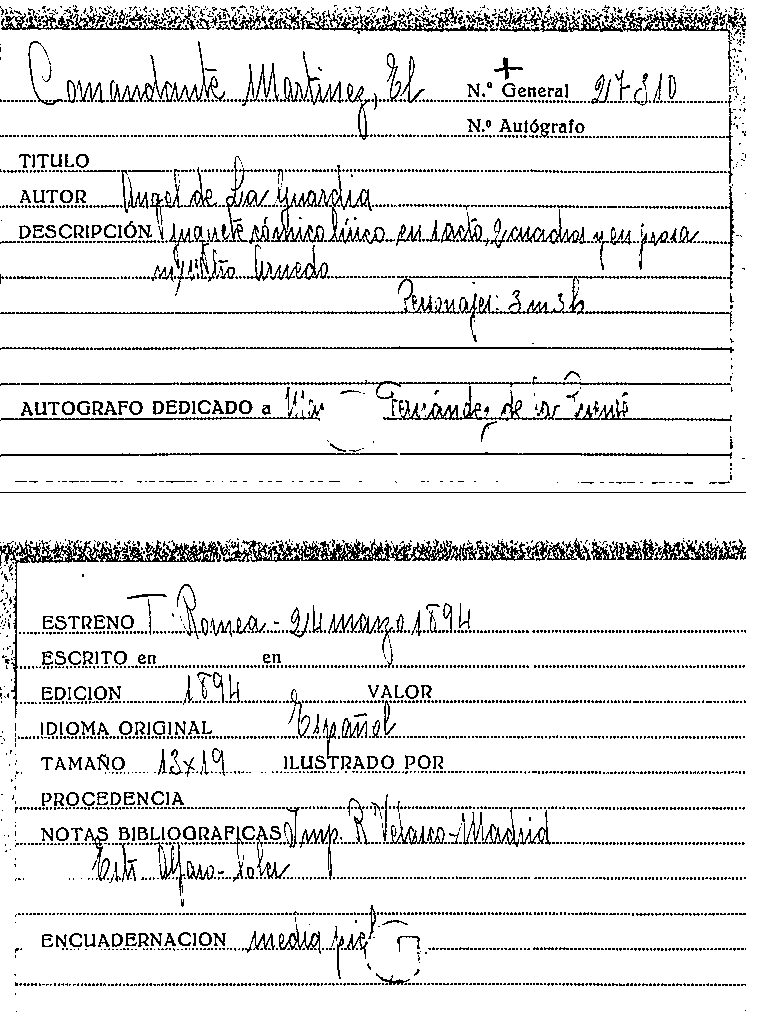 Comandante Martinez, El
N.º General 27810
N.º Autógrafo
TITULO
AUTOR Angel de La Guardia
DESCRIPCIÓN Juguete cómico lírico en 1 acto, 2 cuadros y en prosa
Arnedo
Personajes: 3 m 3 h
AUTOGRAFO DEDICADO a Fernández de la Puente
ESTRENO T. Romea - 24 marzo 1894
ESCRITO en en
EDICION 1894 VALOR
IDIOMA ORIGINAL Español
TAMAÑO 13x19 ILUSTRADO POR
PROCEDENCIA
NOTAS BIBLIOGRAFICAS Imp. R Velasco - Madrid
Estr. Alfaro - Soler
ENCUADERNACION media piel